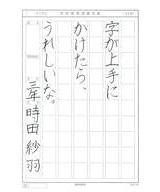 字が上手に
かけたら、
うれしいな。
三年 時田 紗羽